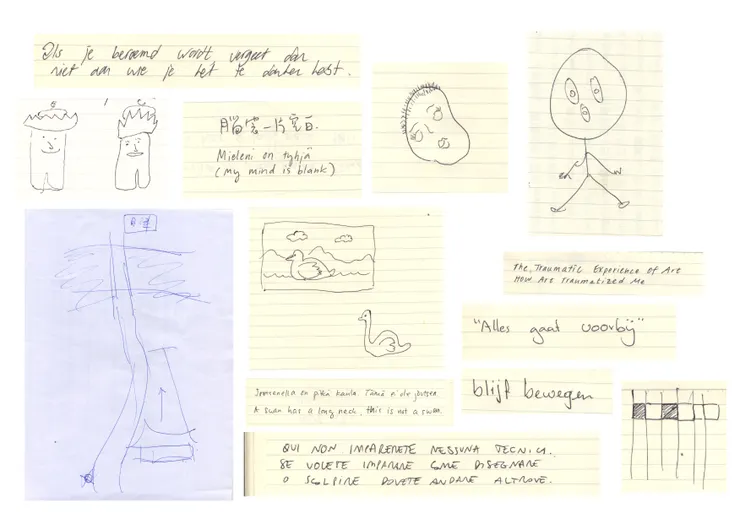 Als je beroemd wordt vergeet dan
niet aan wie je het te danken hebt.
腦雲一片空白.
Mieleni on tyhjä
(my mind is blank)
The Traumatic Experience of Art
How Art Traumatized Me
"Alles gaat voorbij"
blijf bewegen
Joutsenella on pitkä kaula. Tämä ei ole joutsen
A swan has a long neck, this is not a swan.
QUI NON IMPARERETE NESSUNA TECNICA.
SE VOLETE IMPARARE COME DISEGNARE
O SCOLPIRE DOVETE ANDARE ALTROVE.